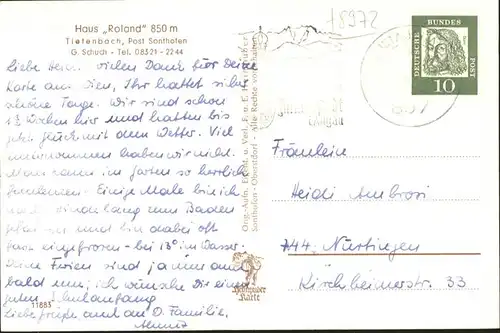 Haus „Roland" 850 m
Tiefenbach, Post Sonthofen
G. Schuch - Tel. 08321 - 2244
18972
Liebe Heidi. Vielen Dank für Deine
Karte aus Wien, Ihr hattet sicher
schöne Tage. Wir sind schon
Wochen hier und hatten bis
jetzt Glück mit dem Wetter. Viel
unternommen haben wir nicht.
Man kann im Garten so herrlich
faulenzen. Einige Male bin ich
zum Baden
und bin dabei oft
fast eingefroren - bei 13° im Wasser.
Deine Ferien sind ja nun auch
bald um, ich wünsche Dir einen
guten Schulanfang
Liebe Grüße auch an D. Familie.
11883
Orig.-Aufn. Eigent. u. Verl. Foto
Sonthofen-Oberstdorf - Alle Rechte vorbehalten
Allgäu
DEUTSCHE BUNDESPOST
10
Fräulein
Heidi Ambrosi
744 Nürtingen
Kirchheimerstr. 33
Karte